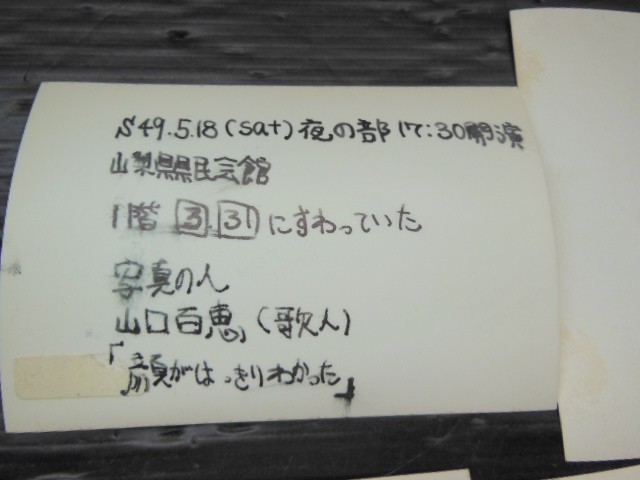 S49.5.18(sat)夜の部17:30開演
山梨県県民会館
1階 3 31 にすわっていた
写真の人
山口百恵(歌人)
「顔がはっきりわかった」